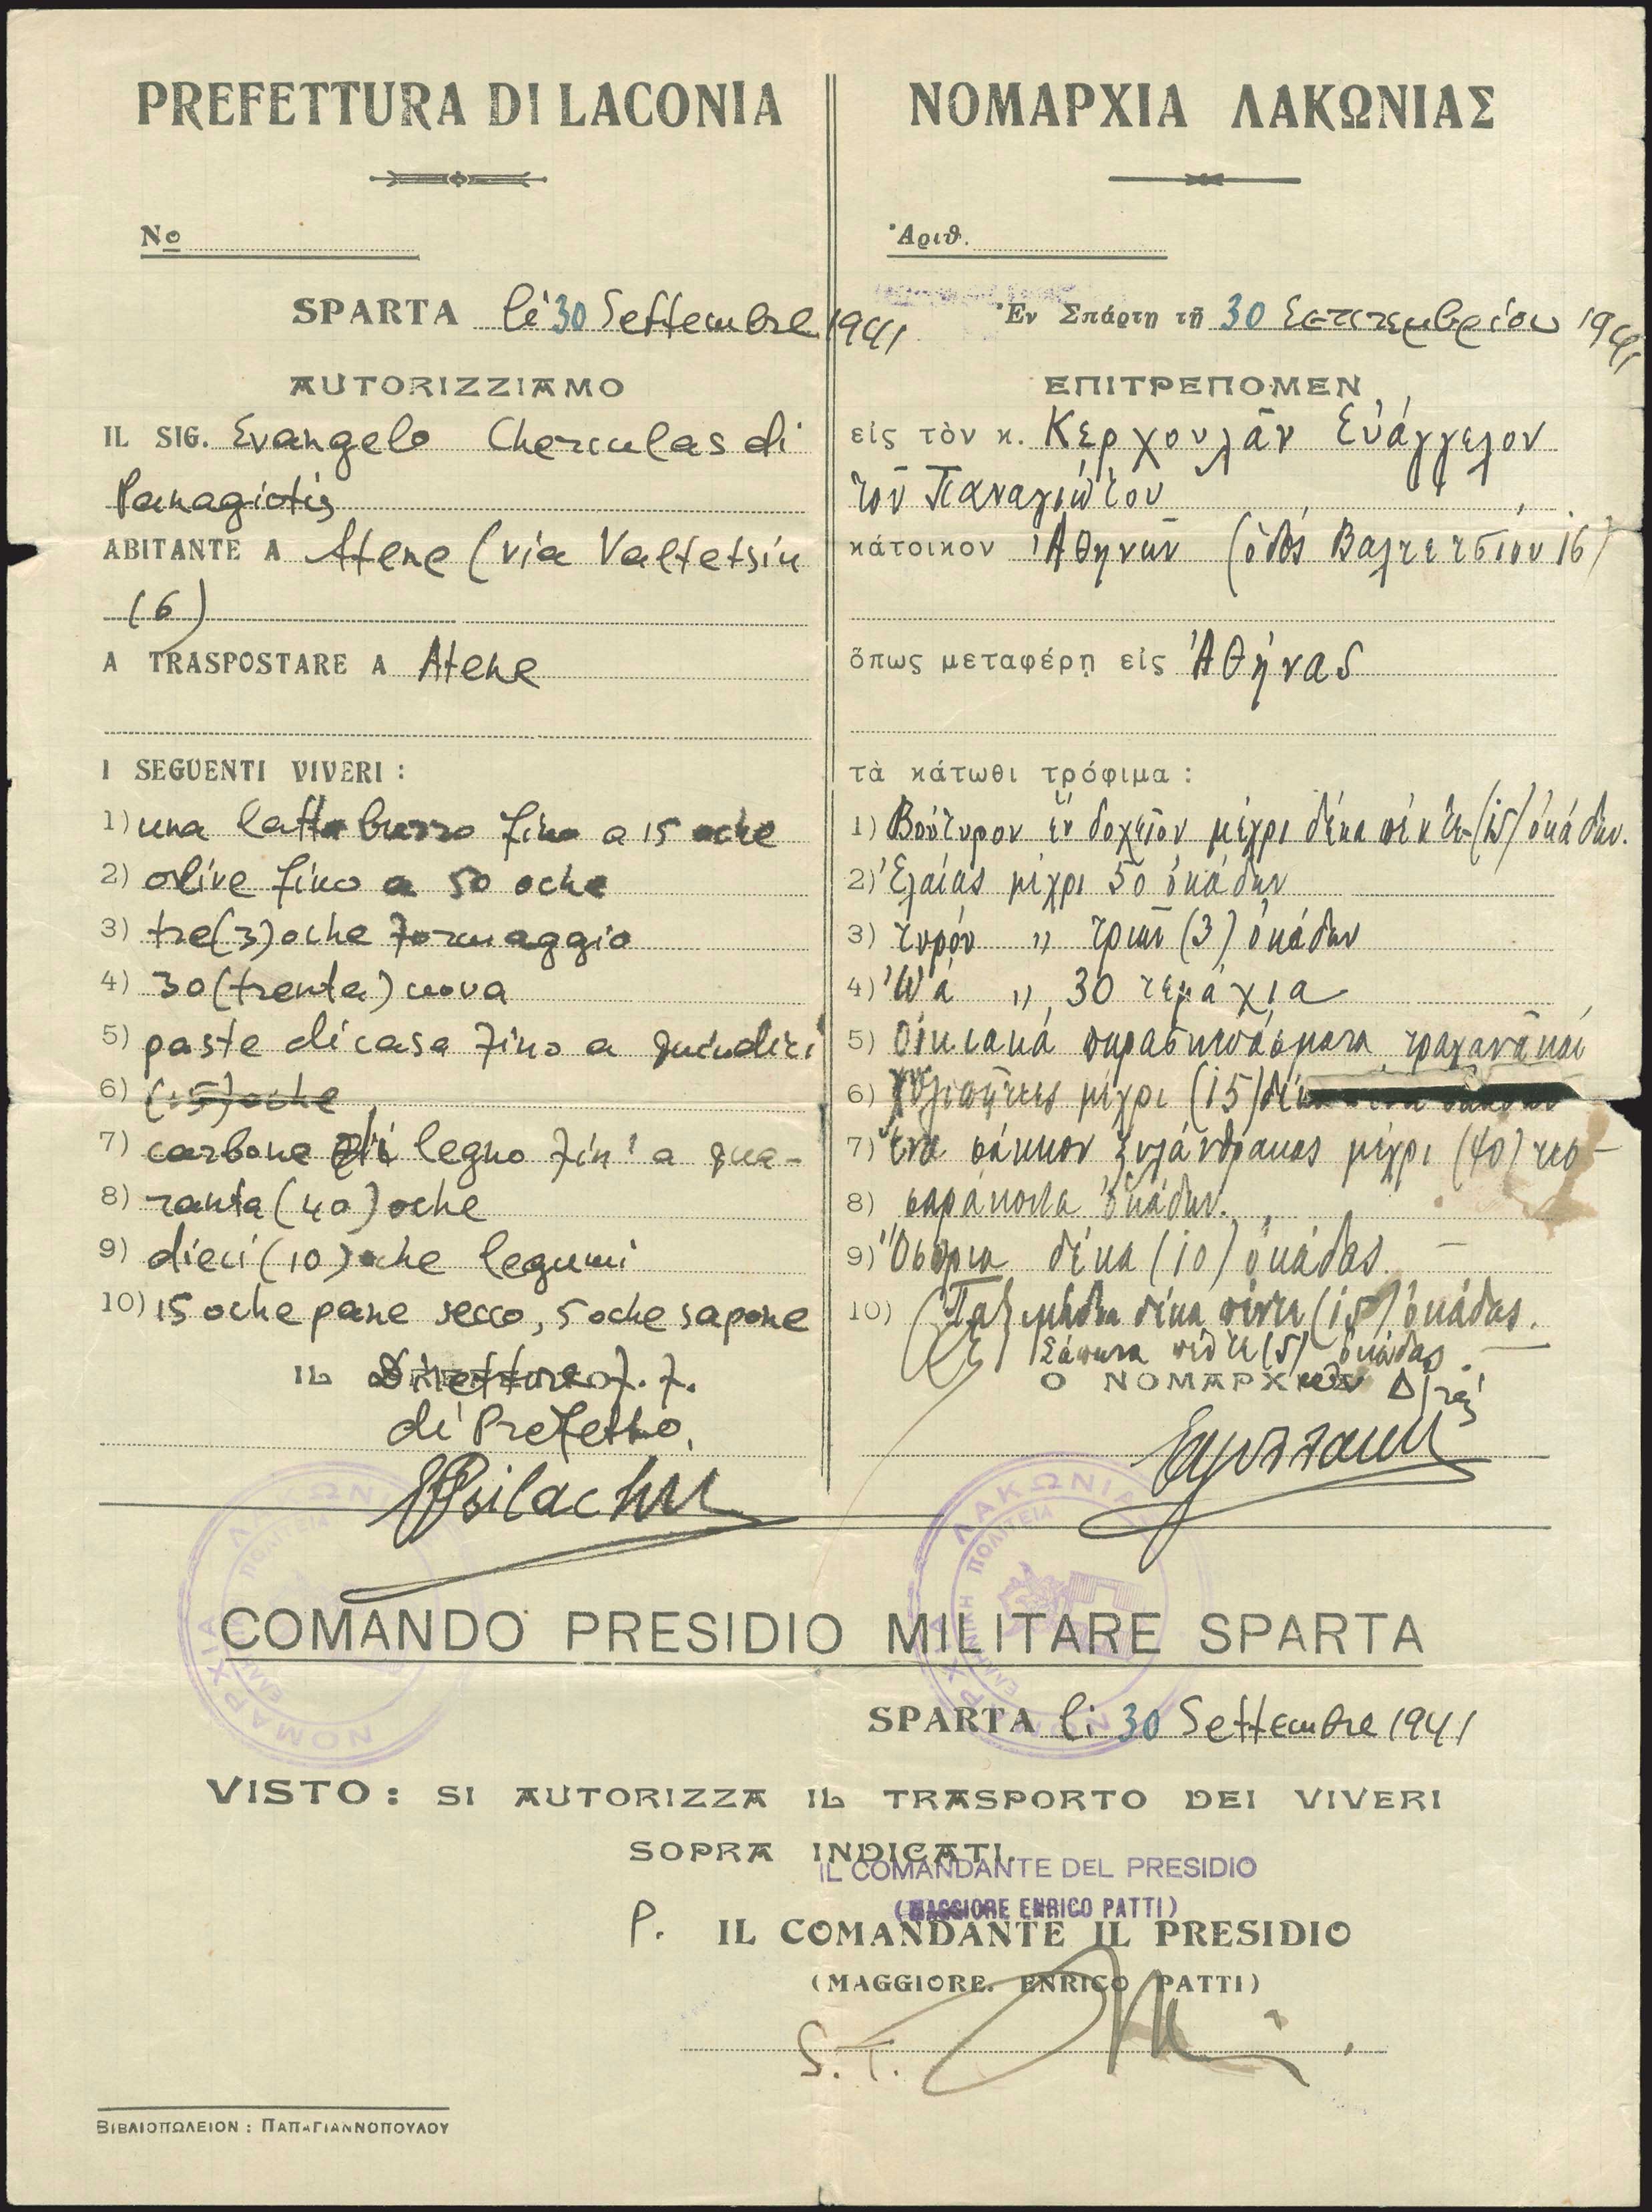 PREFETTURA DI LACONIA
Nο
SPARTA li 30 Settembre 1941
AUTORIZZIAMO
IL SIG. Evangelo Cherculas di
Panagiotis
ABITANTE A Atene (via Valtetsiu
16)
A TRASPOSTARE A Atene
I SEGUENTI VIVERI :
1) una latta burro fino a 15 oche
2) olive fino a 50 oche
3) tre (3) oche formaggio
4) 30 (trenta) uova
5) paste di casa fino a quindici
6) (15) oche
7) carbone di legno fin' a qua-
8) ranta (40) oche
9) dieci (10) oche legumi
10) 15 oche pane secco, 5 oche sapone
IL Direttore f. f.
di Prefetto,
ΝΟΜΑΡΧΙΑ ΛΑΚΩΝΙΑΣ
Ἀριθ.
Ἐν Σπάρτῃ τῇ 30 Σεπτεμβρίου 1941
ΕΠΙΤΡΕΠΟΜΕΝ
εἰς τὸν κ. Κερχουλᾶν Εὐάγγελον
τοῦ Παναγιώτου
κάτοικον Ἀθηνῶν (ὁδὸς Βαλτετσίου 16)
ὅπως μεταφέρῃ εἰς Ἀθήνας
τὰ κάτωθι τρόφιμα :
1) Βούτυρον ἓν δοχεῖον μέχρι δέκα πέντε (15) ὀκάδων.
2) Ἐλαίας μέχρι 50 ὀκάδων
3) τυρόν " τριῶν (3) ὀκάδων
4) Ὠά " 30 τεμάχια
5) Οἰκιακά παρασκευάσματα τραχανᾶ καί
6) χυλοπῆττες μέχρι (15)
7) ἕνα σάκκον ξυλάνθρακας μέχρι (40) τεσ-
8) σαράκοντα ὀκάδων.
9) Ὄσπρια δέκα (10) ὀκάδας. —
10) Παξιμάδια δέκα πέντε (15) ὀκάδας.
Σάπωνα πέντε (5) ὀκάδας. —
Ο ΝΟΜΑΡΧ
COMANDO PRESIDIO MILITARE SPARTA
SPARTA li 30 Settembre 1941
VISTO : SI AUTORIZZA IL TRASPORTO DEI VIVERI
SOPRA INDICATI.
IL COMANDANTE DEL PRESIDIO
(MAGGIORE ENRICO PATTI)
P. IL COMANDANTE IL PRESIDIO
(MAGGIORE. ENRICO PATTI)
S. T.
ΝΟΜΑΡΧΙΑ ΛΑΚΩΝΙΑΣ
ΕΛΛΗΝΙΚΗ ΠΟΛΙΤΕΙΑ
ΒΙΒΛΙΟΠΩΛΕΙΟΝ : ΠΑΠΑΓΙΑΝΝΟΠΟΥΛΟΥ